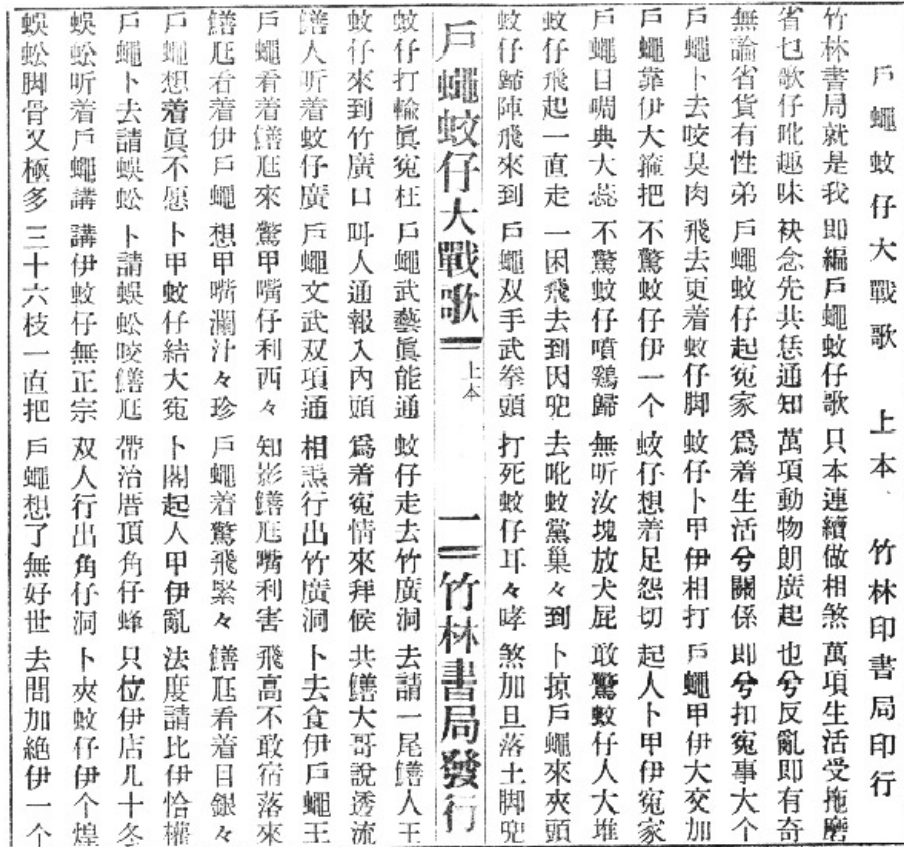 戶蠅蚊仔大戰歌 上本 竹林印書局印行
竹林書局就是我 即編戶蠅蚊仔歌 只本連續做相煞 萬項生活受拖磨
省乜歌仔吪趣味 袂念先共恁通知 萬項動物朗廣起 也兮反亂即有奇
無論省貨有性弟 戶蠅蚊仔起冤家 為着生活兮關係 即兮扣冤事大个
戶蠅卜去咬臭肉 飛去更着蚊仔脚 蚊仔卜甲伊相打 戶蠅甲伊大交加
戶蠅靠伊大箍把 不驚蚊仔伊一个 蚊仔想着足怨切 起人卜甲伊冤家
戶蠅目啁典大蕊 不驚蚊仔噴鷄歸 無听汝塊放犬屁 敢驚蚊仔人大堆
蚊仔飛起一直走 一困飛去到因兜 去吪蚊黨巢々到 卜掠戶蠅來夾頭
蚊仔歸陣飛來到 戶蠅双手武拳頭 打死蚊仔耳々哮 煞加旦落土脚兜
戶蠅蚊仔大戰歌 上本 一 竹林書局發行
蚊仔打輸眞冤枉 戶蠅武藝眞能通 蚊仔走去竹廣洞 去請一尾鱔人王
蚊仔來到竹廣口 叫人通報入內頭 為着冤情來拜候 共鱔大哥說透流
鱔人听着蚊仔廣 戶蠅文武双項通 相𤆬行出竹廣洞 卜去食伊戶蠅王
戶蠅看着鱔尫來 驚甲嘴仔利西々 知影鱔尫嘴利害 飛高不敢宿落來
鱔尫看着伊戶蠅 想甲嘴瀾汁々珍 戶蠅着驚飛緊々 鱔尫看着目銀々
戶蠅想着眞不愿 卜甲蚊仔結大冤 卜閣起人甲伊亂 法度請比伊恰權
戶蠅卜去請蜈蚣 卜請蜈蚣咬鱔尫 帶治厝頂角仔蜂 只位伊店几十冬
蜈蚣听着戶蠅講 講伊蚊仔無正宗 双人行出角仔洞 卜夾蚊仔伊个煌
蜈蚣脚骨又極多 三十六枝一直把 戶蠅想了無好世 去間加絶伊一个